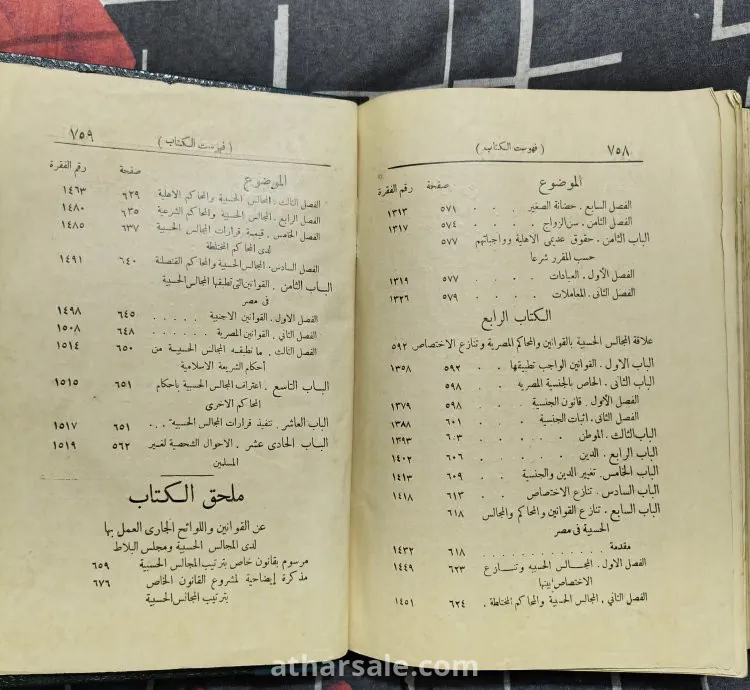 ٧٥٨ ( فهرست الكتاب )
الموضوع صفحة رقم الفقرة
الفصل السابع . حضانة الصغير . . . ٥٧١ ١٣١٣
الفصل الثامن . سن الزواج . . . ٥٧٤ ١٣١٧
الباب الثامن . حقوق عديمى الاهلية وواجباتهم ٥٧٧
حسب المقرر شرعا
الفصل الأول . العبادات . . . ٥٧٧ ١٣١٩
الفصل الثانى . المعاملات . . . ٥٧٩ ١٣٢٦
الكتاب الرابع
علاقة المجالس الحسبية بالقوانين والمحاكم المصرية وتنازع الاختصاص ٥٩٢
الباب الاول . القوانين الواجب تطبيقها . . ٥٩٢ ١٣٥٨
الباب الثانى . الخاص بالجنسية المصريه . . ٥٩٨
الفصل الأول . قانون الجنسية . . ٥٩٨ ١٣٧٩
الفصل الثانى . اثبات الجنسية . . ٦٠١ ١٣٨٨
الباب الثالث . الموطن . . . . . ٦٠٣ ١٣٩٣
الباب الرابع . الدين . . . . . ٦٠٦ ١٤٠٢
الباب الخامس . تغيير الدين والجنسية . . ٦٠٩ ١٤١٣
الباب السادس . تنازع الاختصاص . . . ٦١٣ ١٤١٨
الباب السابع . تنازع القوانين والمحاكم والمجالس ٦١٨
الحسبية فى مصر
مقدمة . . . . . . . . . . ٦١٨ ١٤٣٢
الفصل الاول . المجالس الحسبيه وتنازع ٦٢٣ ١٤٤٩
الاختصاص بينها
الفصل الثاني . المجالس الحسبية والمحاكم المختلطة . ٦٢٤ ١٤٥١
٧٥٩ ( فهرست الكتاب )
الموضوع صفحة رقم الفقرة
الفصل الثالث . المجالس الحسبية والمحاكم الاهلية ٦٢٩ ١٤٦٣
الفصل الرابع . المجالس الحسبيه والمحاكم الشرعية ٦٣٥ ١٤٨٠
الفصل الخامس . قيمة قرارات المجالس الحسبية ٦٣٧ ١٤٨٥
لدى المحاكم المختلطة
الفصل السادس . المجالس الحسبية والمحاكم القنصلية ٦٤٠ ١٤٩١
الباب الثامن . القوانين التى تطبقها المجالس الحسبية
فى مصر
الفصل الاول . القوانين الاجنبية . . . . . ٦٤٥ ١٤٩٨
الفصل الثاني . القوانين المصرية . . . . . . ٦٤٨ ١٥٠٨
الفصل الثالث . ما تطبقه المجالس الحسبية من ٦٥٠ ١٥١٤
أحكام الشريعة الاسلامية
الباب التاسع . اعتراف المجالس الحسبية باحكام ٦٥١ ١٥١٥
المحاكم الاخرى
الباب العاشر . تنفيذ قرارات المجالس الحسبية . . ٦٥١ ١٥١٧
الباب الحادى عشر . الاحوال الشخصية لغير ٥٦٢ ١٥١٩
المسلمين
ملحق الكتاب
عن القوانين واللوائح الجارى العمل بها
لدى المجالس الحسبية ومجلس البلاط
مرسوم بقانون خاص بترتيب المجالس الحسبية ٦٥٩
مذكرة إيضاحية لمشروع القانون الخاص ٦٧٦
بترتيب المجالس الحسبية
atharsale.com